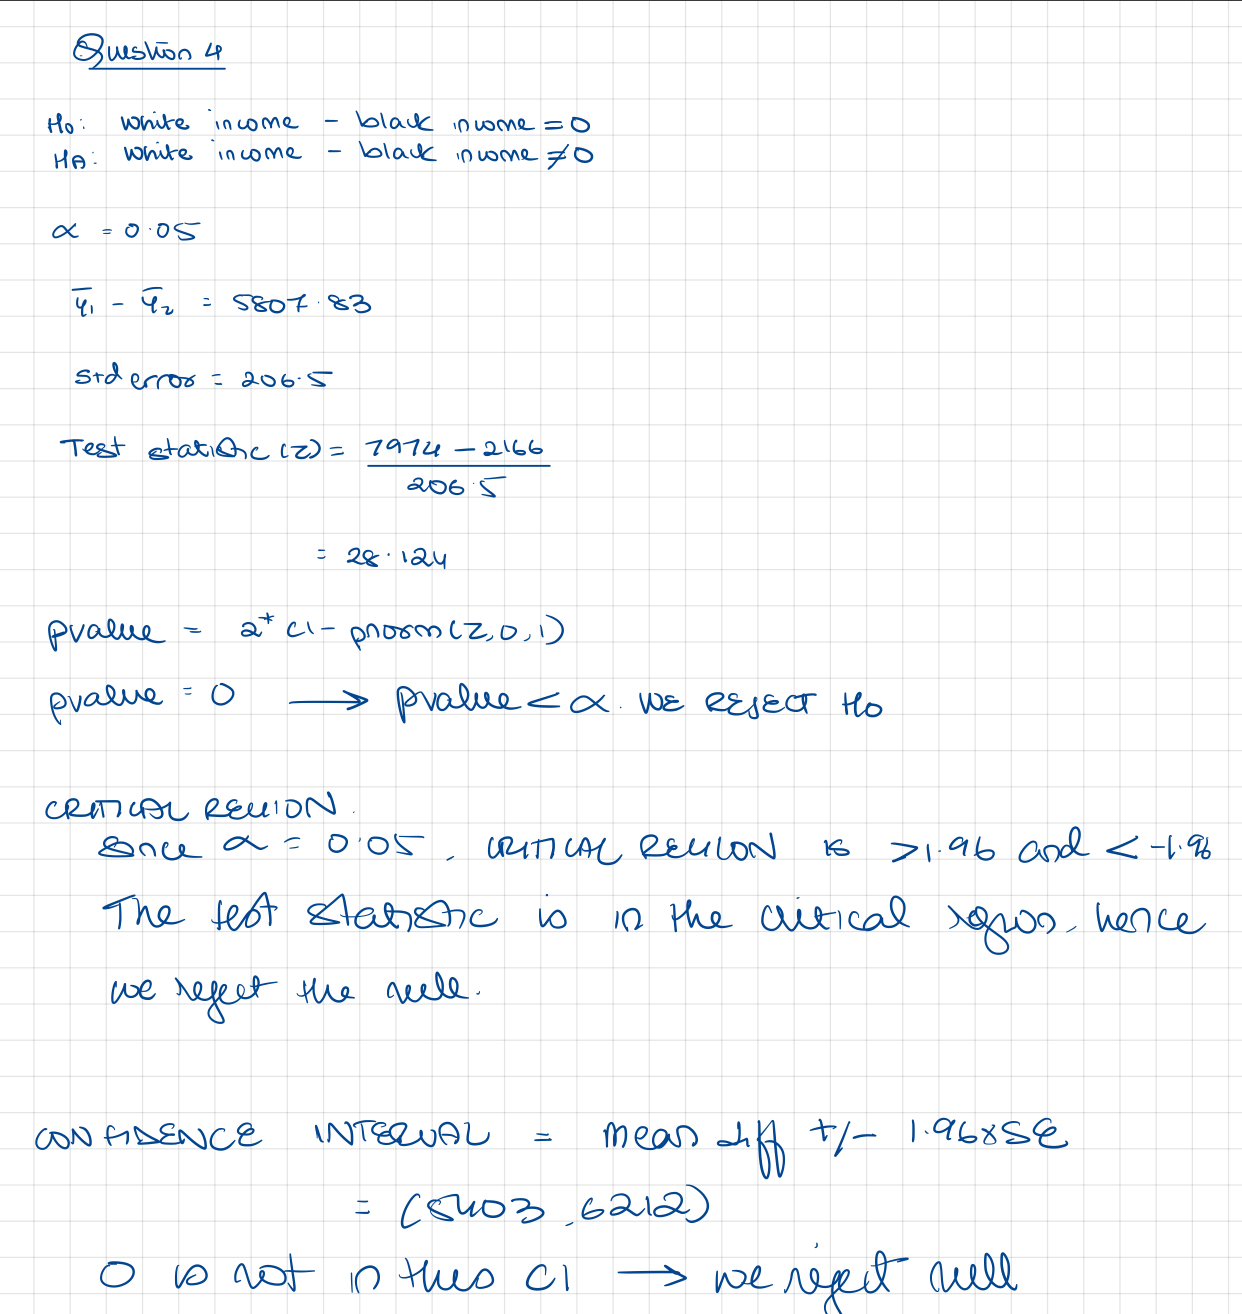 Question 4
H0: white income - black income = 0
HA: white income - black income ≠ 0
α = 0.05
ȳ1 - ȳ2 = 5807.83
std error = 206.5
Test statistic (z) = 7974 - 2166
206.5
= 28.124
pvalue = 2* (1 - pnorm(z,0,1)
pvalue = 0 → pvalue < α. WE REJECT H0
CRITICAL REGION.
Since α = 0.05, CRITICAL REGION is >1.96 and < -1.96
The test statistic is in the critical region, hence
we reject the null.
CONFIDENCE INTERVAL = mean diff +/- 1.96xSE
= (5403, 6212)
0 is not in this CI → we reject null